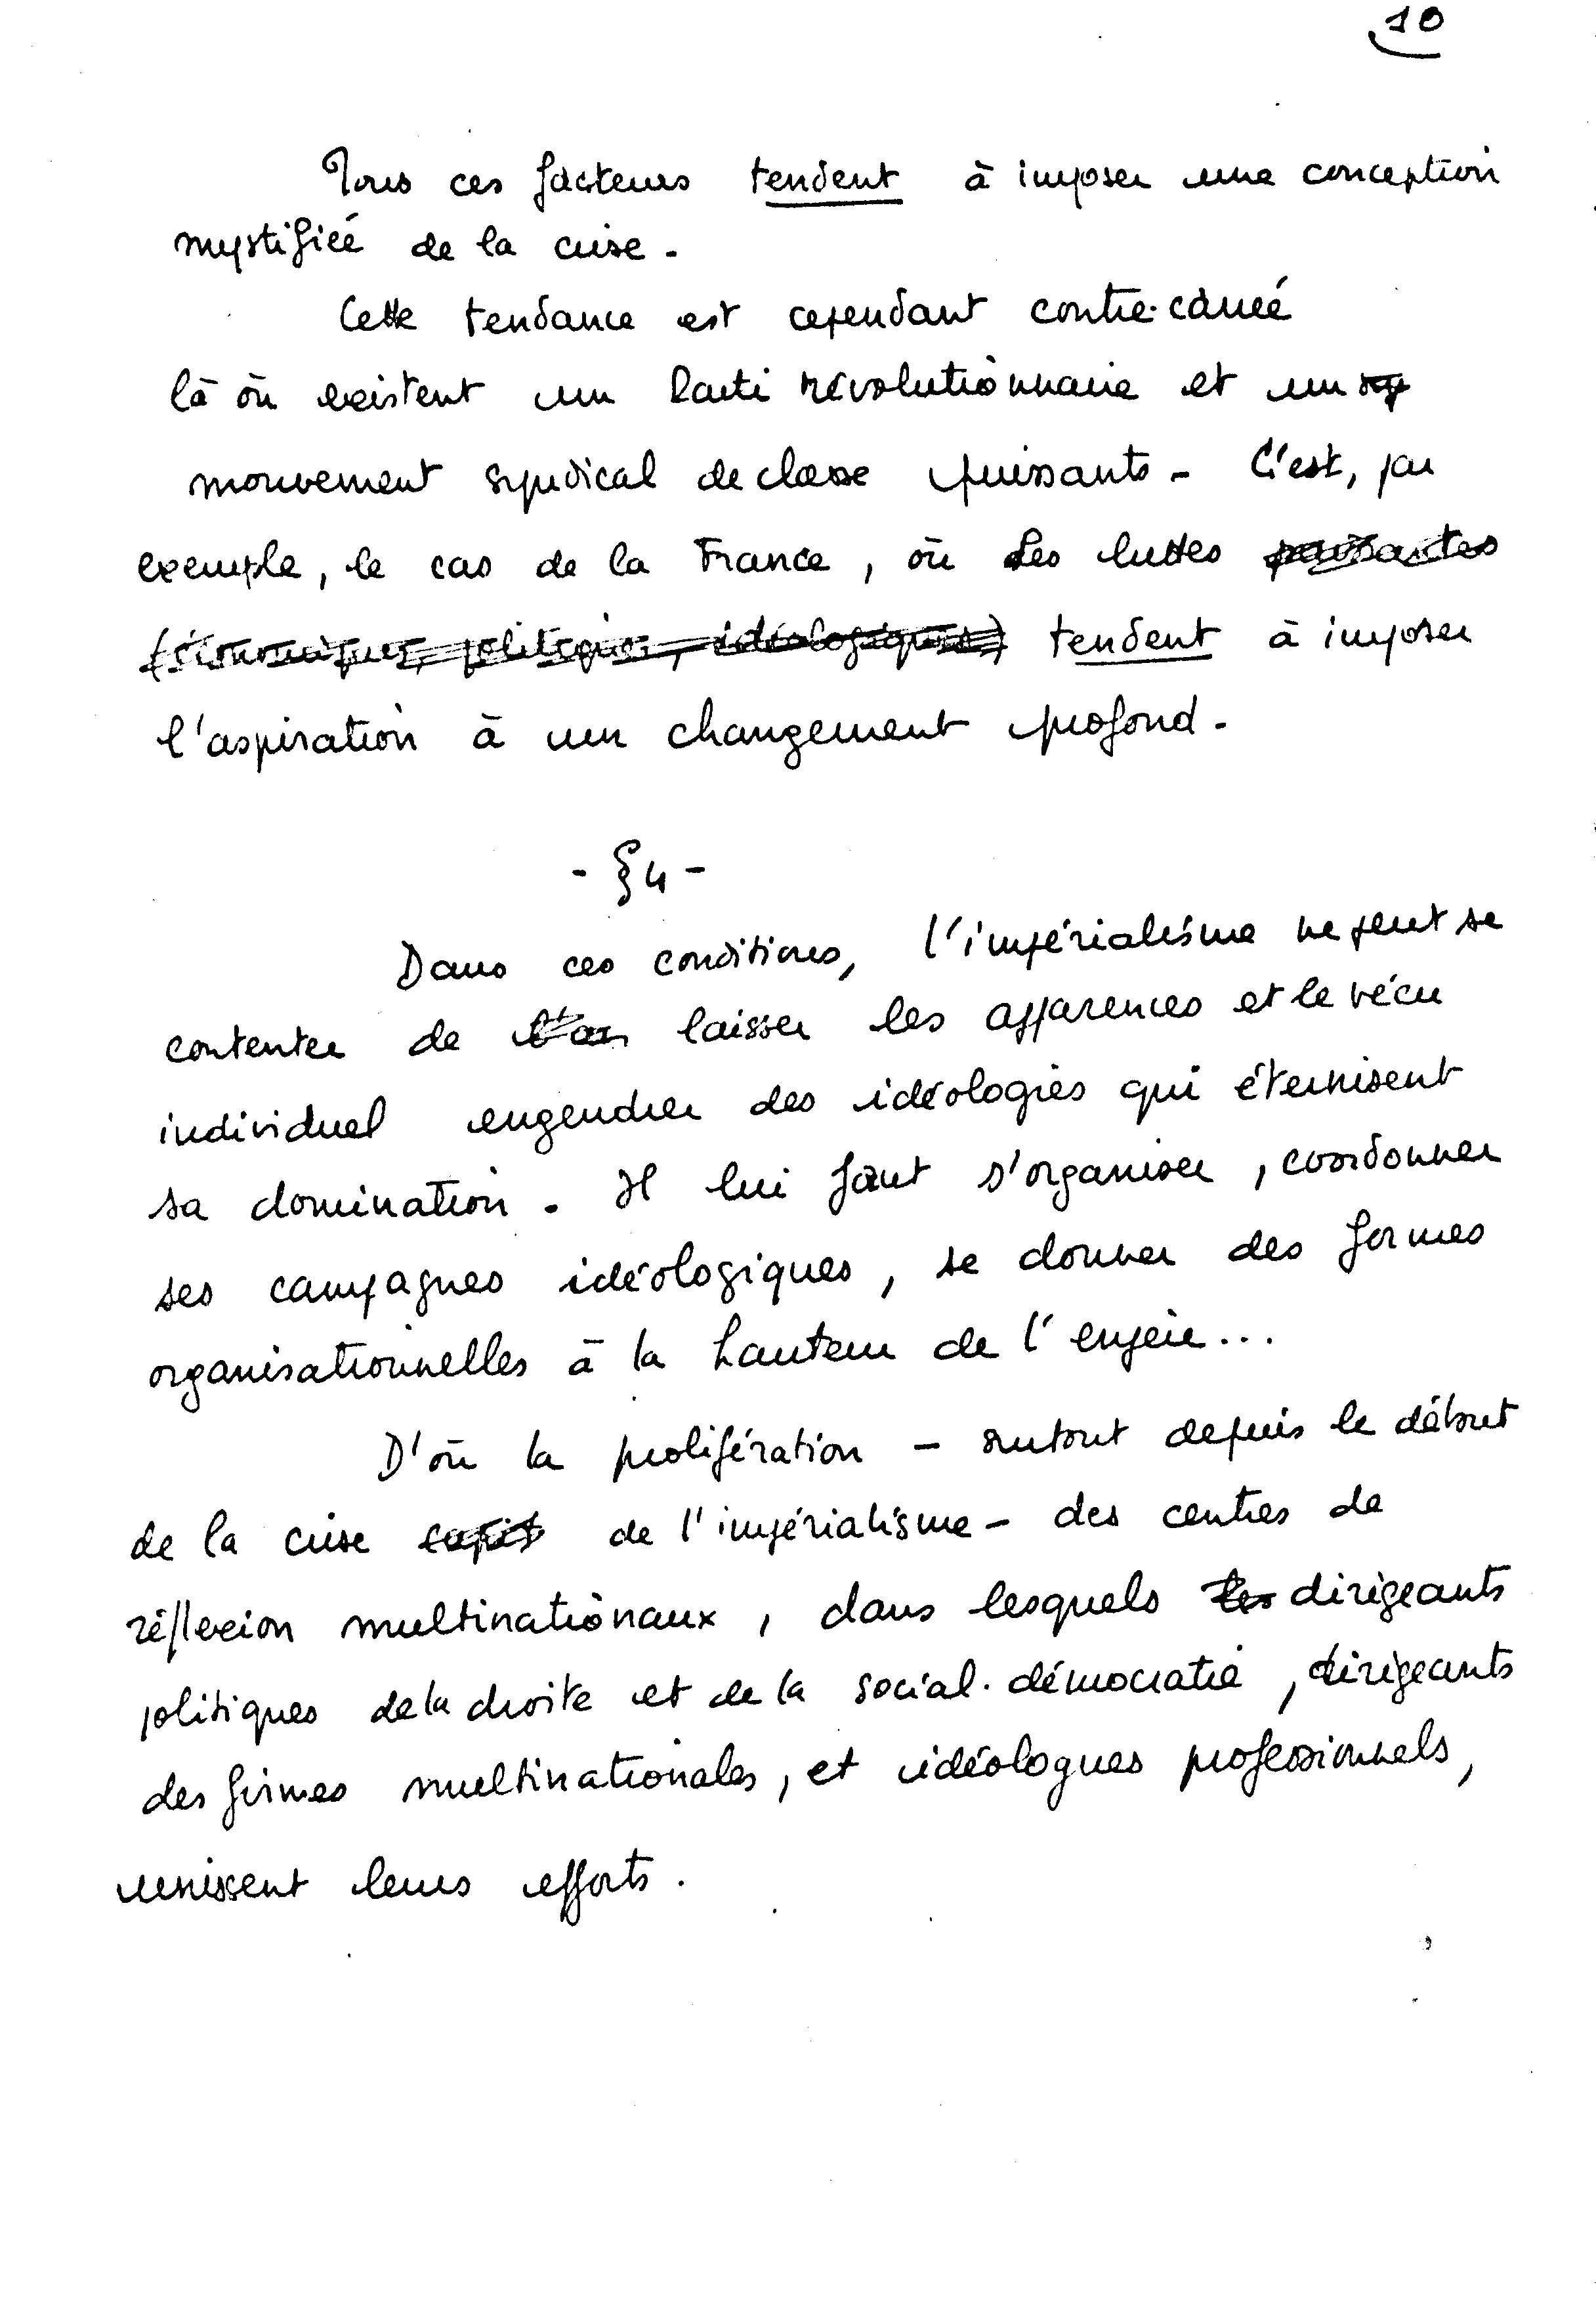 10
Tous ces facteurs tendent à imposer une conception
mystifiée de la crise.
Cette tendance est cependant contre-carrée
là où existent un Parti révolutionnaire et un
mouvement syndical de classe puissants. C'est, par
exemple, le cas de la France, où les luttes puissantes
(économiques, politiques, idéologiques) tendent à imposer
l'aspiration à un changement profond.
- §4 -
Dans ces conditions, l'impérialisme ne peut se
contenter de laisser les apparences et le vécu
individuel engendrer des idéologies qui éternisent
sa domination. Il lui faut s'organiser, coordonner
ses campagnes idéologiques, se donner des formes
organisationnelles à la hauteur de l'enjeu...
D'où la prolifération - surtout depuis le début
de la crise de l'impérialisme - des centres de
réflexion multinationaux, dans lesquels les dirigeants
politiques de la droite et de la social-démocratie, dirigeants
des firmes multinationales, et idéologues professionnels,
unissent leurs efforts.